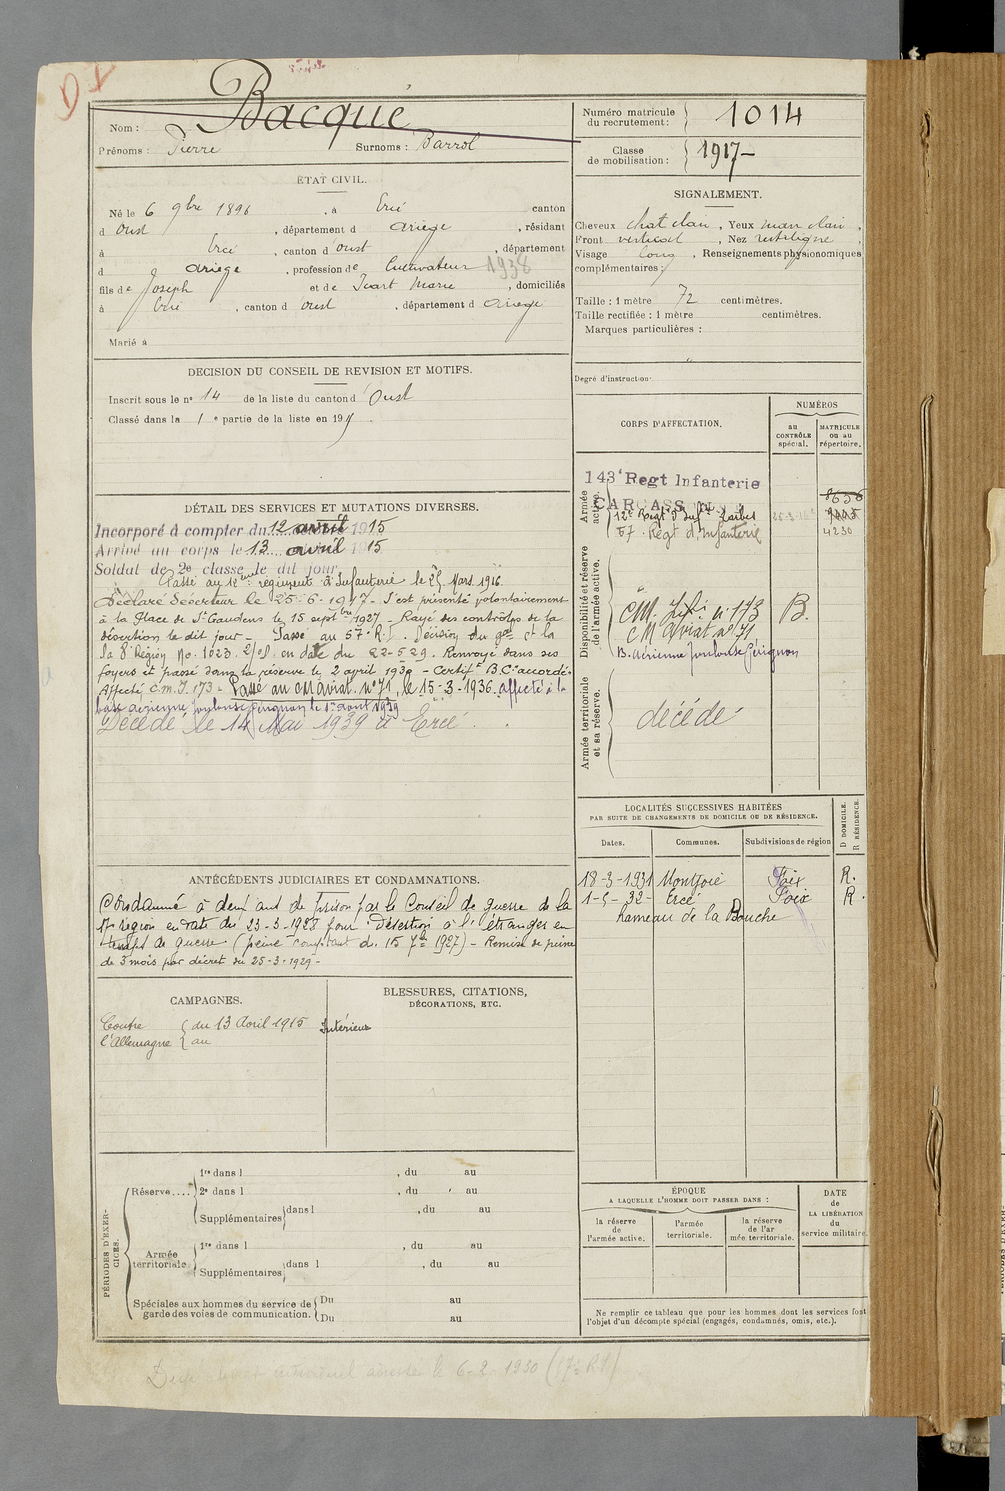 Bacqué
Nom :
Prénoms : Pierre Surnoms : Barrol
ÉTAT CIVIL.
Né le 6 9bre 1896, à Ercé canton
d Oust, département d Ariège, résidant
à Ercé, canton d'Oust, département
d Ariège, profession de Cultivateur 1938
fils de Joseph et de Icart Marie, domiciliés
à Ercé, canton d Oust, département d Ariège
Marié à
DECISION DU CONSEIL DE REVISION ET MOTIFS.
Inscrit sous le n° 14 de la liste du canton d'Oust
Classé dans la 1e partie de la liste en 19
DÉTAIL DES SERVICES ET MUTATIONS DIVERSES.
Incorporé à compter du 12 avril 1915
Arrivé au corps le 13 avril 1915
Soldat de 2e classe le dit jour
Passé au 12me régiment d'Infanterie le 25 Mars 1916.
Déclaré Déserteur le 25-6-1917- S'est présenté volontairement
à la Place de St Gaudens le 15 septbre 1927 - Rayé des contrôles de la
désertion le dit jour - Passé au 57e R.I. Décision du gal Ct la
18e Région No 1023 en date du 22-5 29. Renvoyé dans ses
foyers et passé dans la réserve le 2 avril 1930 - Certift B.Cte accordé.
Affecté C.M.I. 173 - Passé au CM Aviat. n° 71, le 15-3-1936. affecté à la
base aérienne Toulouse Pérignon le 1er avril 1939
Décédé le 14 Mai 1939 à Ercé.
ANTÉCÉDENTS JUDICIAIRES ET CONDAMNATIONS.
Condamné à deux ans de Prison par le Conseil de guerre de la
17e région en date du 23-3-1928 pour Désertion à l'étranger en
temps de guerre (peine comptant du 15 7bre 1927) - Remise de peine
de 3 mois par décret du 25-3-1929 -
CAMPAGNES.
Contre l'Allemagne { du 13 Avril 1915 Intérieur
au
BLESSURES, CITATIONS,
DÉCORATIONS, ETC.
PÉRIODES D'EXERCICES.
Réserve....
1re dans l , du au
2e dans l , du au
Supplémentaires dans l , du au
Armée territoriale
1re dans l , du au
Supplémentaires dans l , du au
Spéciales aux hommes du service de
garde des voies de communication.
Du au
Du au
Numéro matricule
du recrutement : 1014
Classe
de mobilisation : 1917-
SIGNALEMENT.
Cheveux chat clair, Yeux marr clair,
Front vertical, Nez rectiligne,
Visage long, Renseignements physionomiques
complémentaires :
Taille : 1 mètre 72 centimètres.
Taille rectifiée : 1 mètre centimètres.
Marques particulières :
Degré d'instruction.
CORPS D'AFFECTATION.
NUMÉROS
au
CONTRÔLE
spécial.
MATRICULE
ou au
répertoire.
Armée
active.
143e Regt Infanterie
CARCASSONNE
8636
12e Régt d'Infie Tarbes
57e Régt d'Infanterie
4230
Disponibilité et réserve
de l'armée active.
CM. Infie n° 173 B.
CM Aviat n° 71
B. Aérienne Toulouse Pérignon
Armée territoriale
et sa réserve.
décédé
LOCALITÉS SUCCESSIVES HABITÉES
PAR SUITE DE CHANGEMENTS DE DOMICILE OU DE RÉSIDENCE.
Dates. Communes. Subdivisions de région
D DOMICILE.
R RÉSIDENCE.
18-3-1931 Montjoie Foix R.
1-5-32- Ercé Foix R.
hameau de la Bouche
ÉPOQUE
A LAQUELLE L'HOMME DOIT PASSER DANS :
la réserve
de
l'armée active.
l'armée
territoriale.
la réserve
de l'ar
mée territoriale.
DATE
de
LA LIBÉRATION
du
service militaire.
Ne remplir ce tableau que pour les hommes dont les services font
l'objet d'un décompte spécial (engagés, condamnés, omis, etc.).
le 6-2-1930